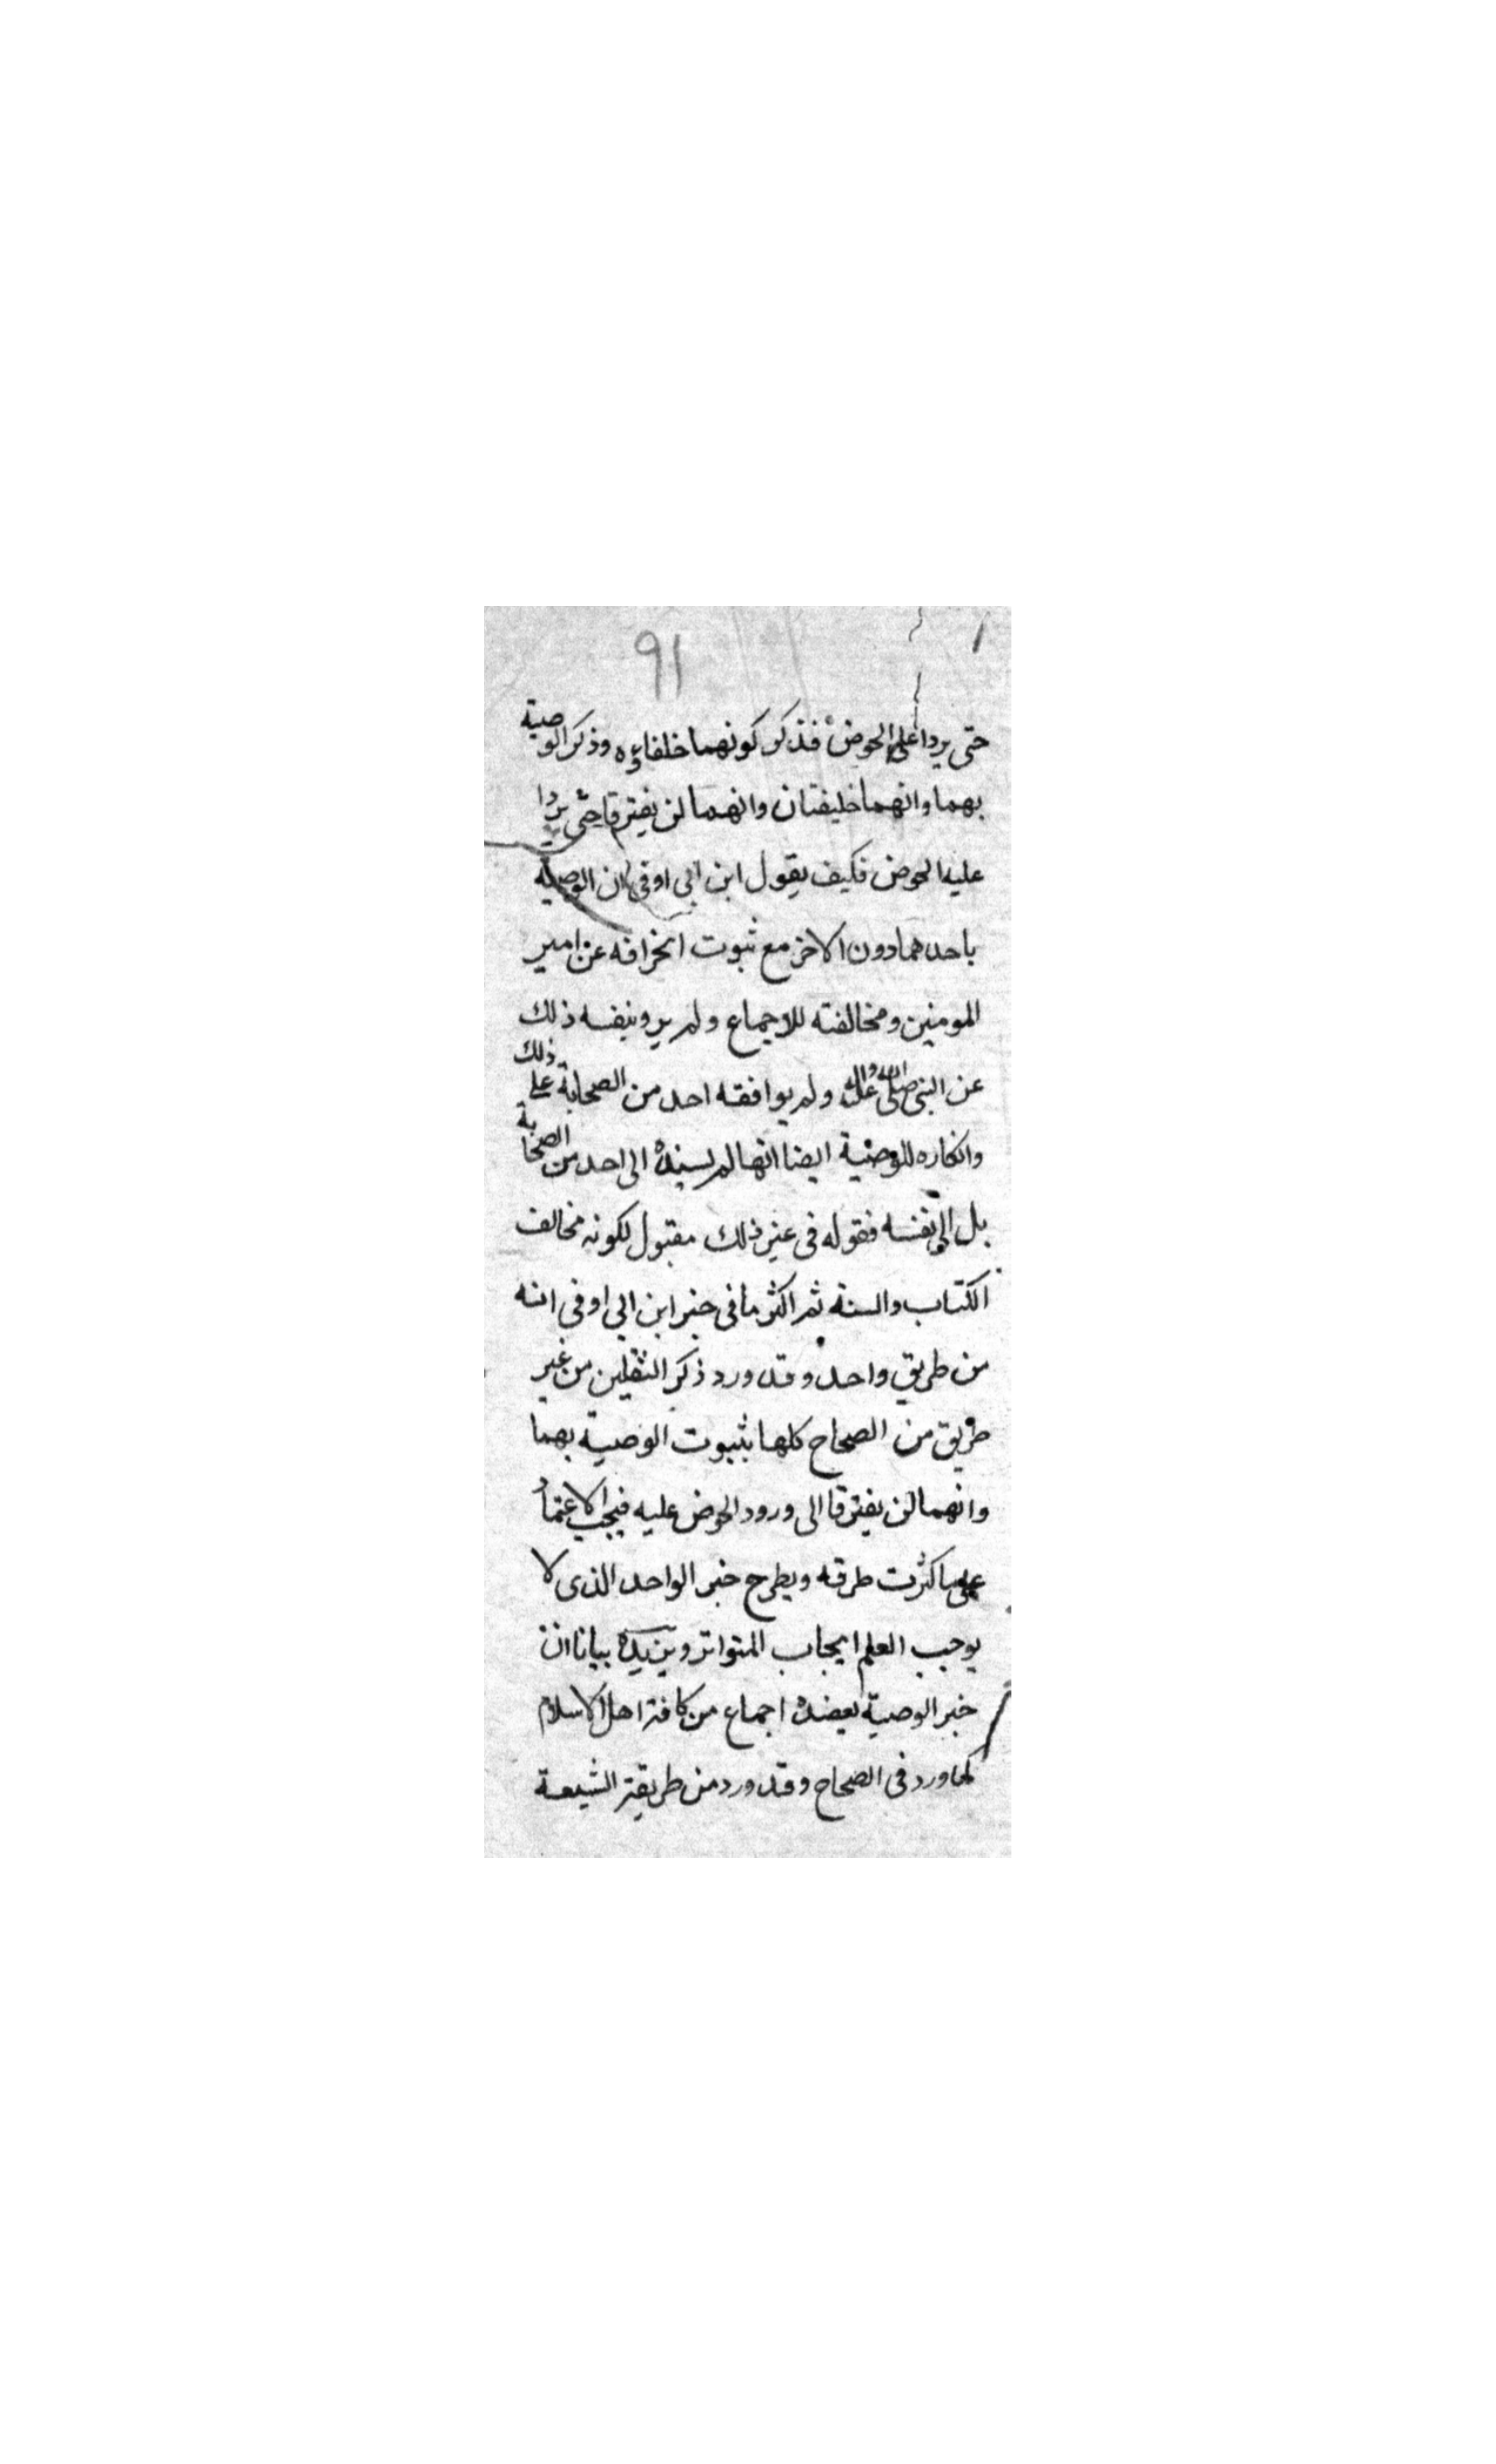 ٩١
حتى يردا على الحوض فذكر كونهما خلفاؤه وذكر الوصية
بهما وانهما خليفتان وانهما لن يفترقا حتى يردا
عليه الحوض فكيف يقول ابن ابى اوفى ان الوصية
باحدهما دون الاخر مع ثبوت انحرافه عن امير
المومنين ومخالفته للاجماع ولم يرو بنفسه ذلك
عن النبى صلى الله عليه واله ولم يوافقه احد من الصحابة على ذلك
وانكاره للوصية ايضا انها لم يسنده الى احد من الصحابة
بل الى نفسه فقوله فى غير ذلك مقبول لكونه مخالف
الكتاب والسنة ثم اكثر ما فى خبر ابن ابى اوفى انه
من طريق واحد وقد ورد ذكر الثقلين من غير
طريق من الصحاح كلها بثبوت الوصية بهما
وانهما لن يفترقا الى ورود الحوض عليه فيجب الاعتماد
على ما كثرت طرقه ويطرح خبر الواحد الذى لا
يوجب العلم ايجاب المتواتر ويزيده بيانا ان
خبر الوصية يعضده اجماع من كافة اهل الاسلام
لما ورد فى الصحاح وقد ورد من طريقة الشيعة